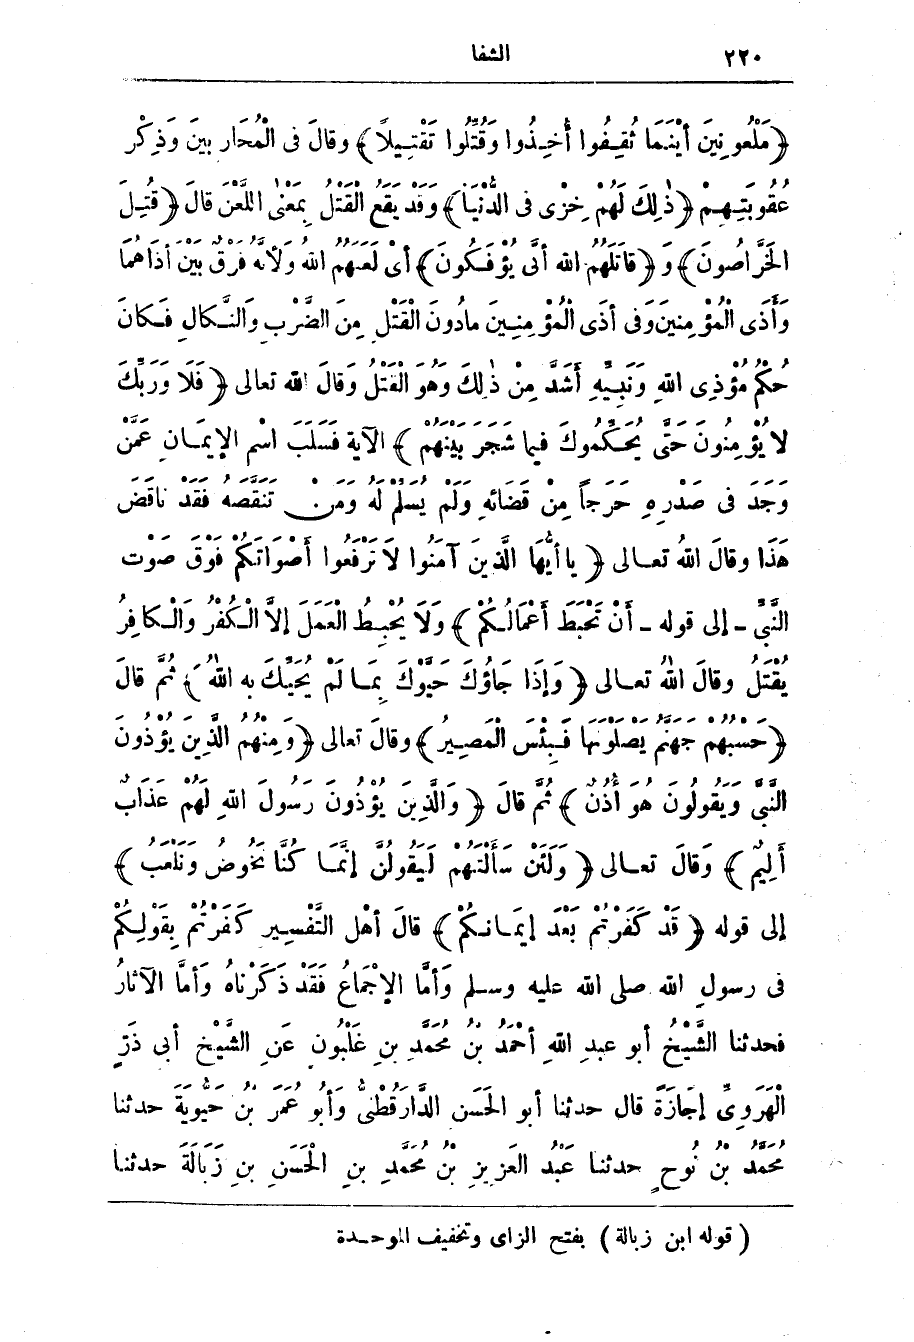 ٢٢٠ الشفا
﴿مَلْعُونِينَ أَيْنَمَا ثُقِفُوا أُخِذُوا وَقُتِّلُوا تَقْتِيلاً﴾ وقالَ فى الْمُحَارِبِينَ وَذِكْرِ
عُقُوبَتِهِمْ ﴿ذٰلِكَ لَهُمْ خِزْى فى الدُّنْيَا﴾ وَقَدْ يَقَعُ الْقَتْلُ بِمَعْنٰى اللَّعْنِ قالَ ﴿قُتِلَ
الْخَرَّاصُونَ﴾ وَ﴿قاتَلَهُمُ الله أنَّى يُؤْفَكُونَ﴾ أىْ لَعَنَهُم اللهُ وَلأنَّهُ فَرْقٌ بَيْنَ أذَاهُمَا
وَأَذَى الْمُؤْمِنِينَ وَفى أذَى الْمُؤْمِنِينَ مادُونَ الْقَتْلِ مِنَ الضَّرْبِ والنَّكالِ فَكانَ
حُكْمُ مُؤْذِى اللهِ وَنَبِيِّهِ أَشَدَّ مِنْ ذٰلِكَ وَهُوَ الْقَتْلُ وقَالَ الله تعالى ﴿ فَلَا وَرَبِّكَ
لا يُؤْمِنُونَ حَتَّى يُحَكِّمُوكَ فيما شَجَرَ بَيْنَهُمْ ﴾ الآية فَسَلَبَ اسْم الإيمَانِ عَمَّنْ
وَجَدَ فى صَدْرِهِ حَرَجاً مِنْ قَضَائِهِ وَلَمْ يُسَلِّمْ لَهُ وَمَنْ تَنَقَّصَهُ فَقَدْ ناقَضَ
هَذَا وقالَ اللهُ تعـالى ﴿ ياأيُّهَا الَّذِينَ آمَنُوا لاَ تَرْفَعُوا أصْوَاتَكُمْ فَوْقَ صَوْتِ
النَّبِيِّ - إلى قوله - أنْ تَحْبَطَ أعْمَالُكُمْ ﴾ وَلَا يُحْبِطُ الْعَمَلَ إلاَّ الْكُفْرُ وَالْكافِرُ
يُقْتَلُ وقالَ اللهُ تعـالى ﴿ وَإذَا جَاؤُكَ حَيَّوْكَ بِمَـا لَمْ يُحَيِّكَ بِهِ اللهُ ﴾ ثُمَّ قالَ
﴿حَسْبُهُمْ جَهَنَّمُ يَصْلَوْنَهَا فَبِئْسَ الْمَصِيرُ﴾ وقالَ تعالى ﴿وَمِنْهُمُ الَّذِينَ يُؤْذُونَ
النَّبِيَّ وَيَقُولُونَ هُوَ أُذُنٌ ﴾ ثُمَّ قالَ ﴿ وَالَّذِينَ يُؤْذُونَ رَسُولَ اللهِ لَهُمْ عَذَابٌ
أَلِيمٌ ﴾ وَقالَ تعـالى ﴿ وَلَئِنْ سَأَلْتَهُمْ لَيَقُولُنَّ إنَّمَـا كُنَّا نَخُوضُ وَنَلْعَبُ ﴾
إلى قوله ﴿ قَدْ كَفَرْتُمْ بَعْدَ إيمَـانِكُمْ ﴾ قالَ أهْلُ التَّفْسِيرِ كَفَرْتُمْ بِقَوْلِكُمْ
فى رسولِ الله صلى الله عليه وسـلم وَأمَّا الإجْمَاعُ فَقَدْ ذَكَرْناهُ وَأمَّا الآثارُ
فحدثنا الشَّيْخُ أبو عبدِ اللهِ أحْمَدُ بْنُ مُحَمَّدِ بنِ غَلْبُون عَنِ الشَّيْخِ أبى ذَرٍّ
الْهَرَوِيِّ إجَازَةً قال حدثنا أبو الحَسَنِ الدَّارقُطْنِىُّ وَأبو عُمَرَ بْنُ حَيويَةَ حدثنا
مُحَمَّدُ بْنُ نُوحٍ حدثنا عَبْدُ العَزِيزِ بْنُ مُحَمَّدِ بنِ الْحَسَنِ بنِ زَبَالَةَ حدثنا
( قوله ابن زبالة ) بفتح الزاى وتخفيف الموحـدة